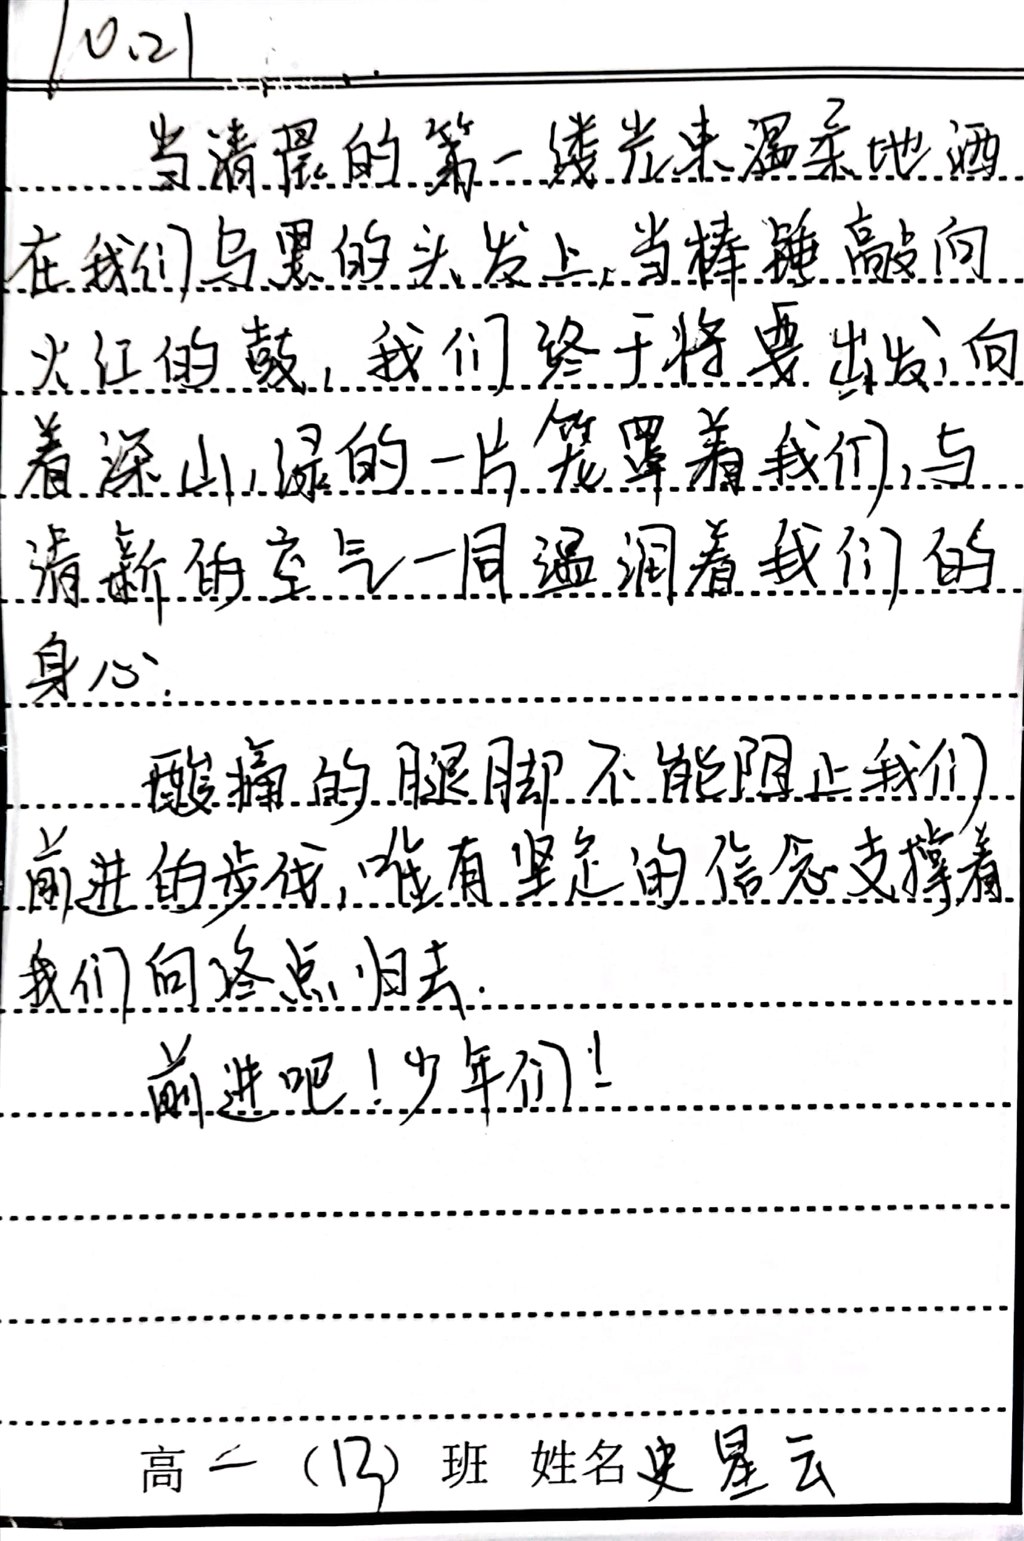 10.21
当清晨的第一缕光束温柔地洒
在我们乌黑的头发上,当棒锤敲向
火红的鼓,我们终于将要出发,向
着深山,绿的一片笼罩着我们,与
清新的空气一同温润着我们的
身心.
酸痛的腿脚不能阻止我们
前进的步伐,唯有坚定的信念支撑着
我们向终点归去.
前进吧!少年们!
高二(13)班 姓名史星云